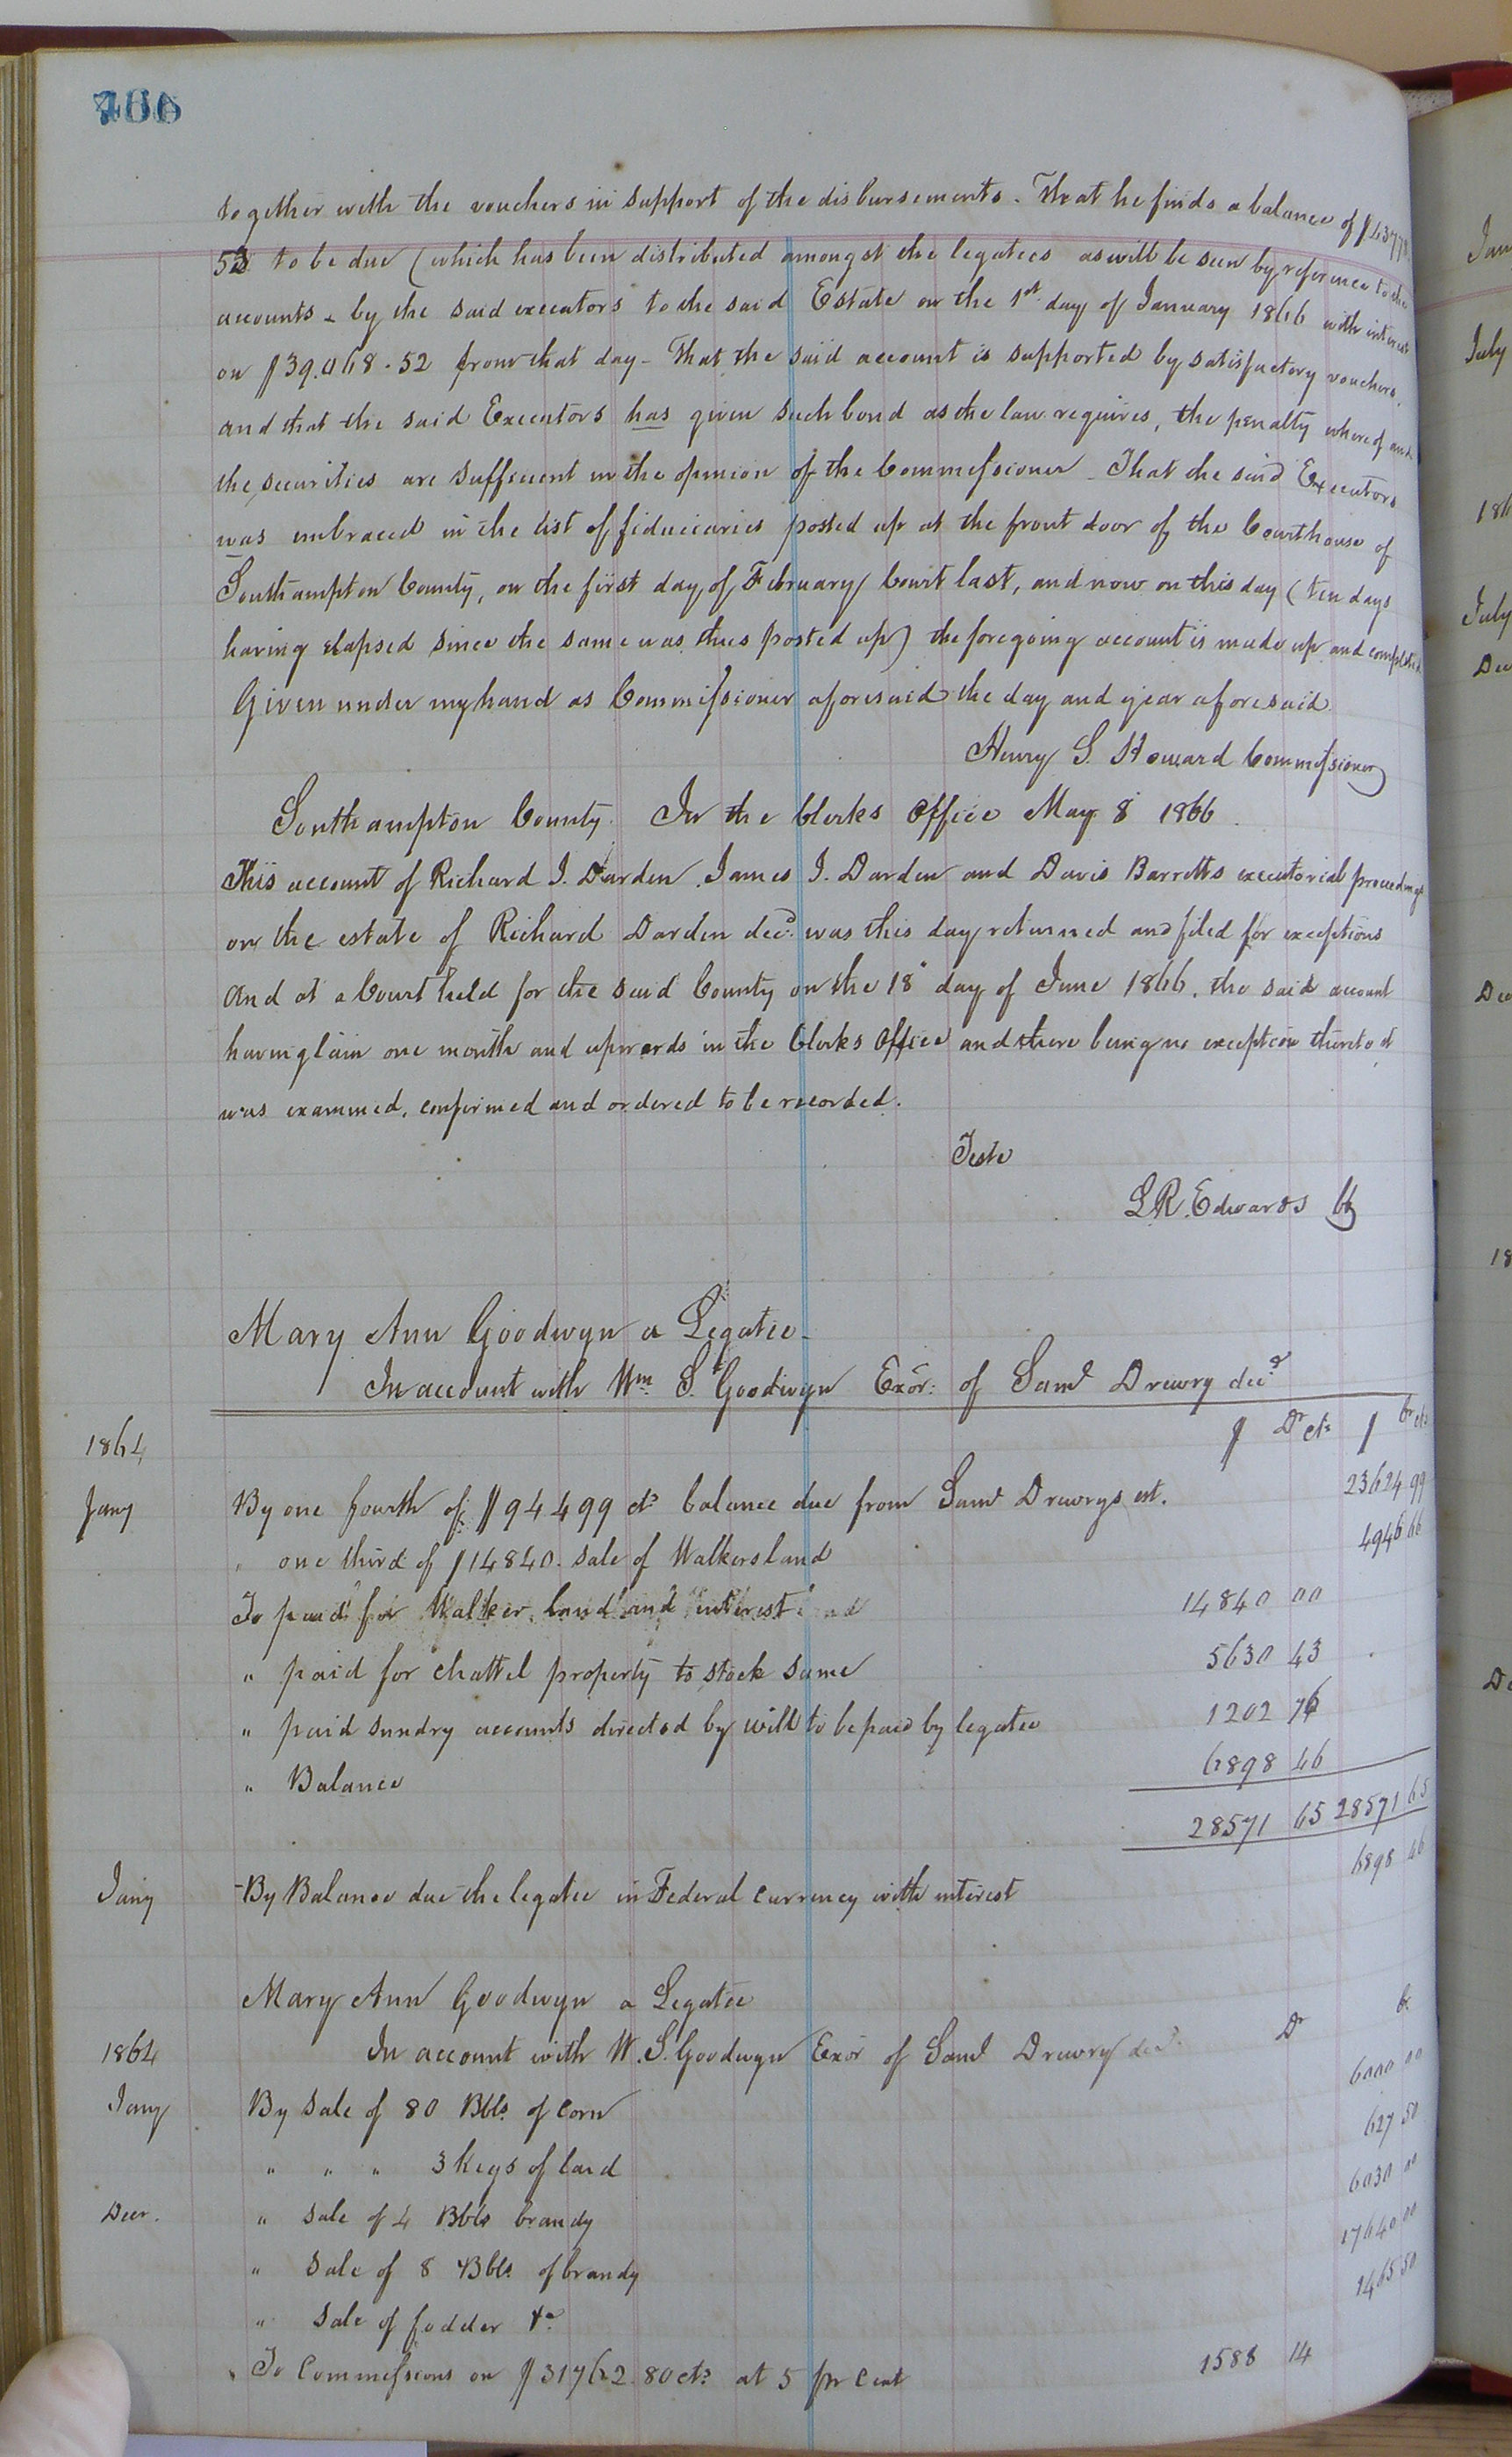 together with the vouchers in support of the disbursements. That he finds a balance of $4377
53 to be due (which has been distributed amongst the legatees as will be seen by reference to the
accounts - by the said executors to the said Estate on the 1st day of January 1866 with interest
on $39.068.52 from that day - That the said account is supported by satisfactory vouchers,
and that the said Executors has given such bond as the law requires, the penalty whereof and
the securities are sufficient in the opinion of the Commissioner - That the said Executors
was embraced in the list of fiduciaries posted up at the front door of the Courthouse of
Southampton County, on the first day of February Court last, and now on this day (ten days
having elapsed since the same was thus posted up) the foregoing account is made up and completed
Given under my hand as Commissioner aforesaid the day and year aforesaid
Henry S. Howard Commissioner
Southampton County. In the Clerks Office May 8 1866.
This account of Richard J. Darden, James J. Darden and Davis Barretts executorial proceedings
on the estate of Richard Darden decd. was this day returned and filed for exceptions
And at a Court held for the said County on the 18" day of June 1866, the said account
having lain one month and upwards in the Clerks Office and there being no exception thereto it
was examined, confirmed and ordered to be recorded.
Teste
L R. Edwards Ck
Mary Ann Goodwyn a Legatee -
In account with Wm. S. Goodwyn Exor: of Saml Drewry decd
1864 $ Dr cts $ Cr cts
Jany By one fourth of $94499 cts balance due from Saml Drewrys est. 23624 99
" one third of $14840. sale of Walkers land 4946 66
To paid for Walker land and interest 14840 00
" paid for chattel property to stock same 5630 43
" paid sundry accounts directed by will to be paid by legatee 1202 76
" Balance 6898 46
28571 65 28571 65
Jany By Balance due the legatee in Federal currency with interest 6898 46
Mary Ann Goodwyn a Legatee
1864 In account with W. S. Goodwyn Exor of Saml Drewry decd. Dr Cr
Jany By Sale of 80 Bbls. of Corn 6000 00
" " " 3 Kegs of lard 627 50
Decr. " Sale of 4 Bbls brandy 6030 00
" Sale of 8 Bbls. of brandy 17640 00
" Sale of fodder &c 1465 50
" To Commissions on $31762.80 cts at 5 pr Cent 1588 14